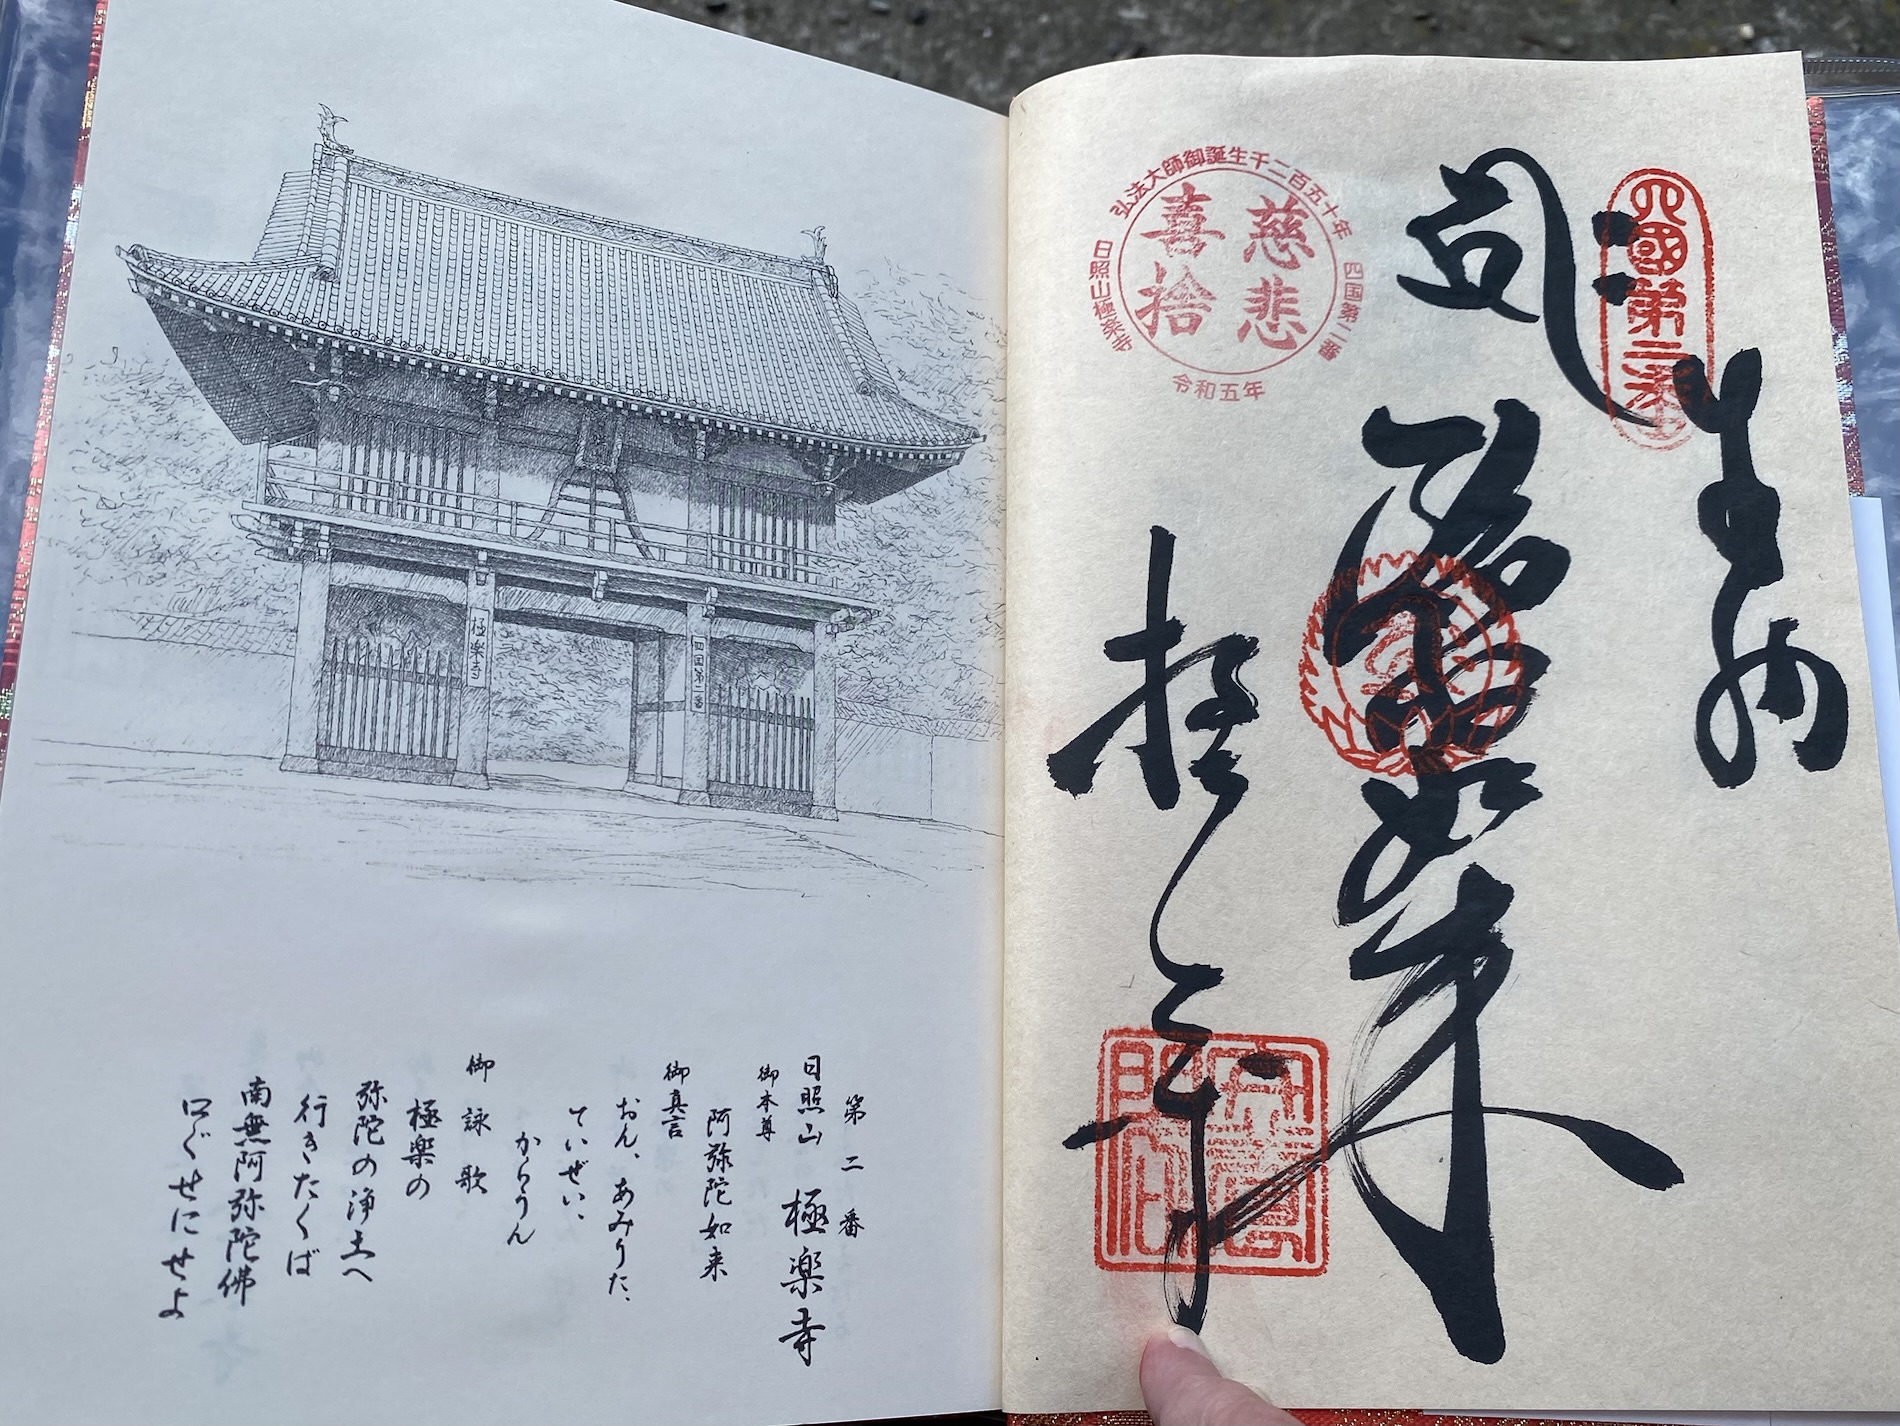 極楽寺
四国第二番
第二番
日照山 極楽寺
御本尊
阿弥陀如来
御真言
おん、あみりた、
ていぜい、
からうん
御詠歌
極楽の
弥陀の浄土へ
行きたくば
南無阿弥陀佛
口ぐせにせよ
奉納
四國第二番
阿弥陀如来
極楽寺
弘法大師御誕生千二百五十年
四国第二番
慈悲
喜捨
日照山極楽寺
令和五年